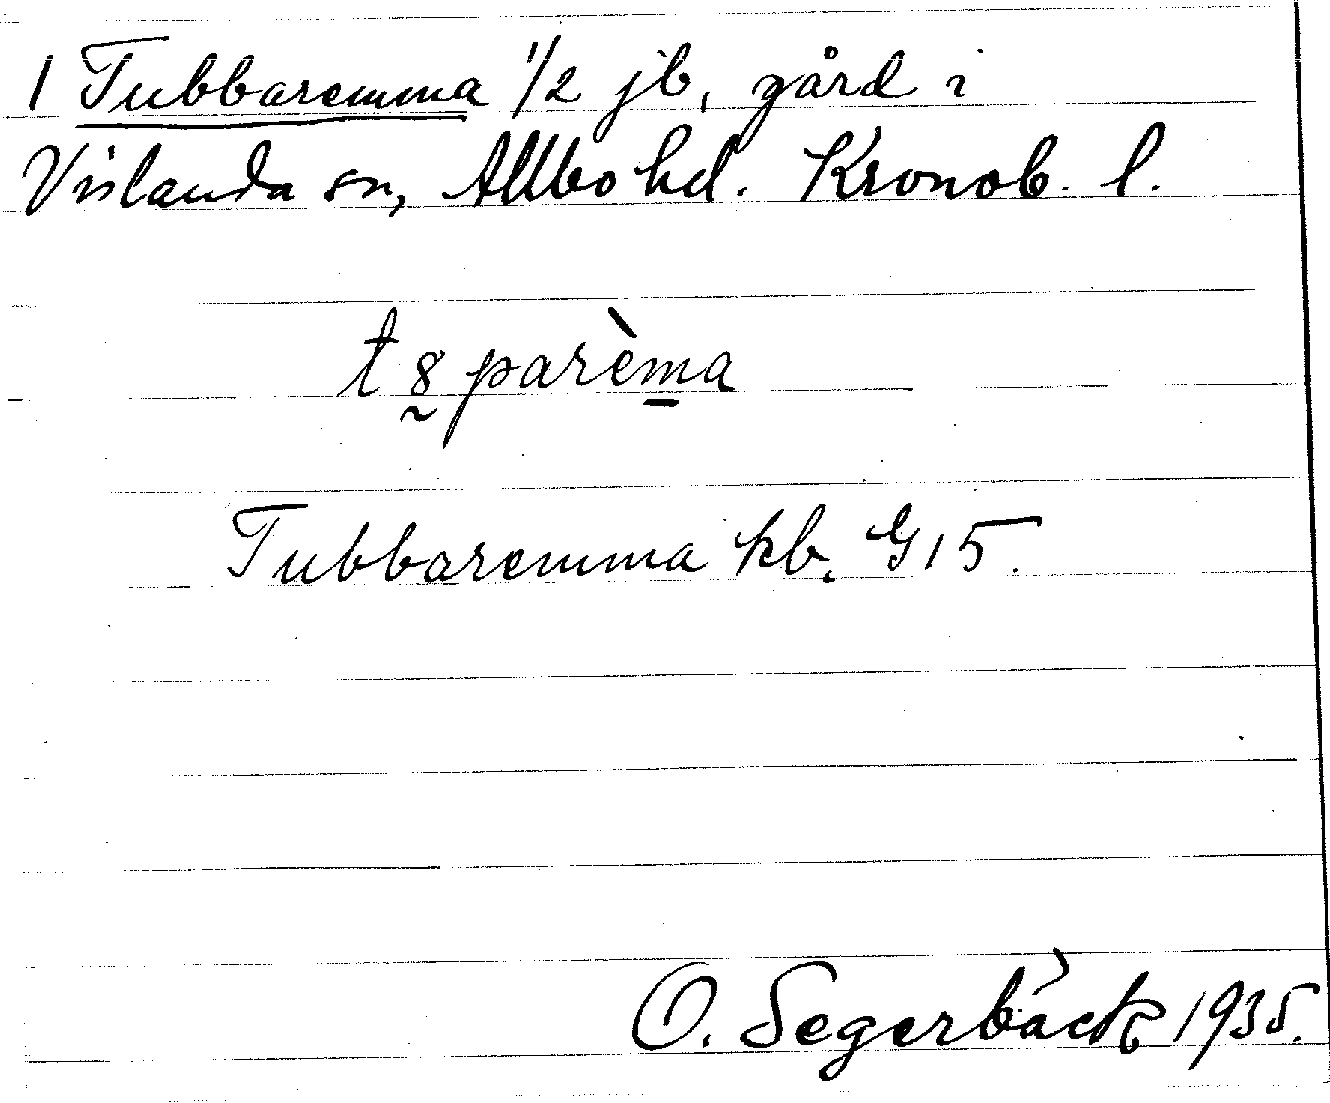 1 Tubbaremma 1/2 jb, gård i
Vislanda sn, Allbo hd. Kronob. l.
t8̰parèm̱a
Tubbaremma kb. G15.
O. Segerbäck 1935.